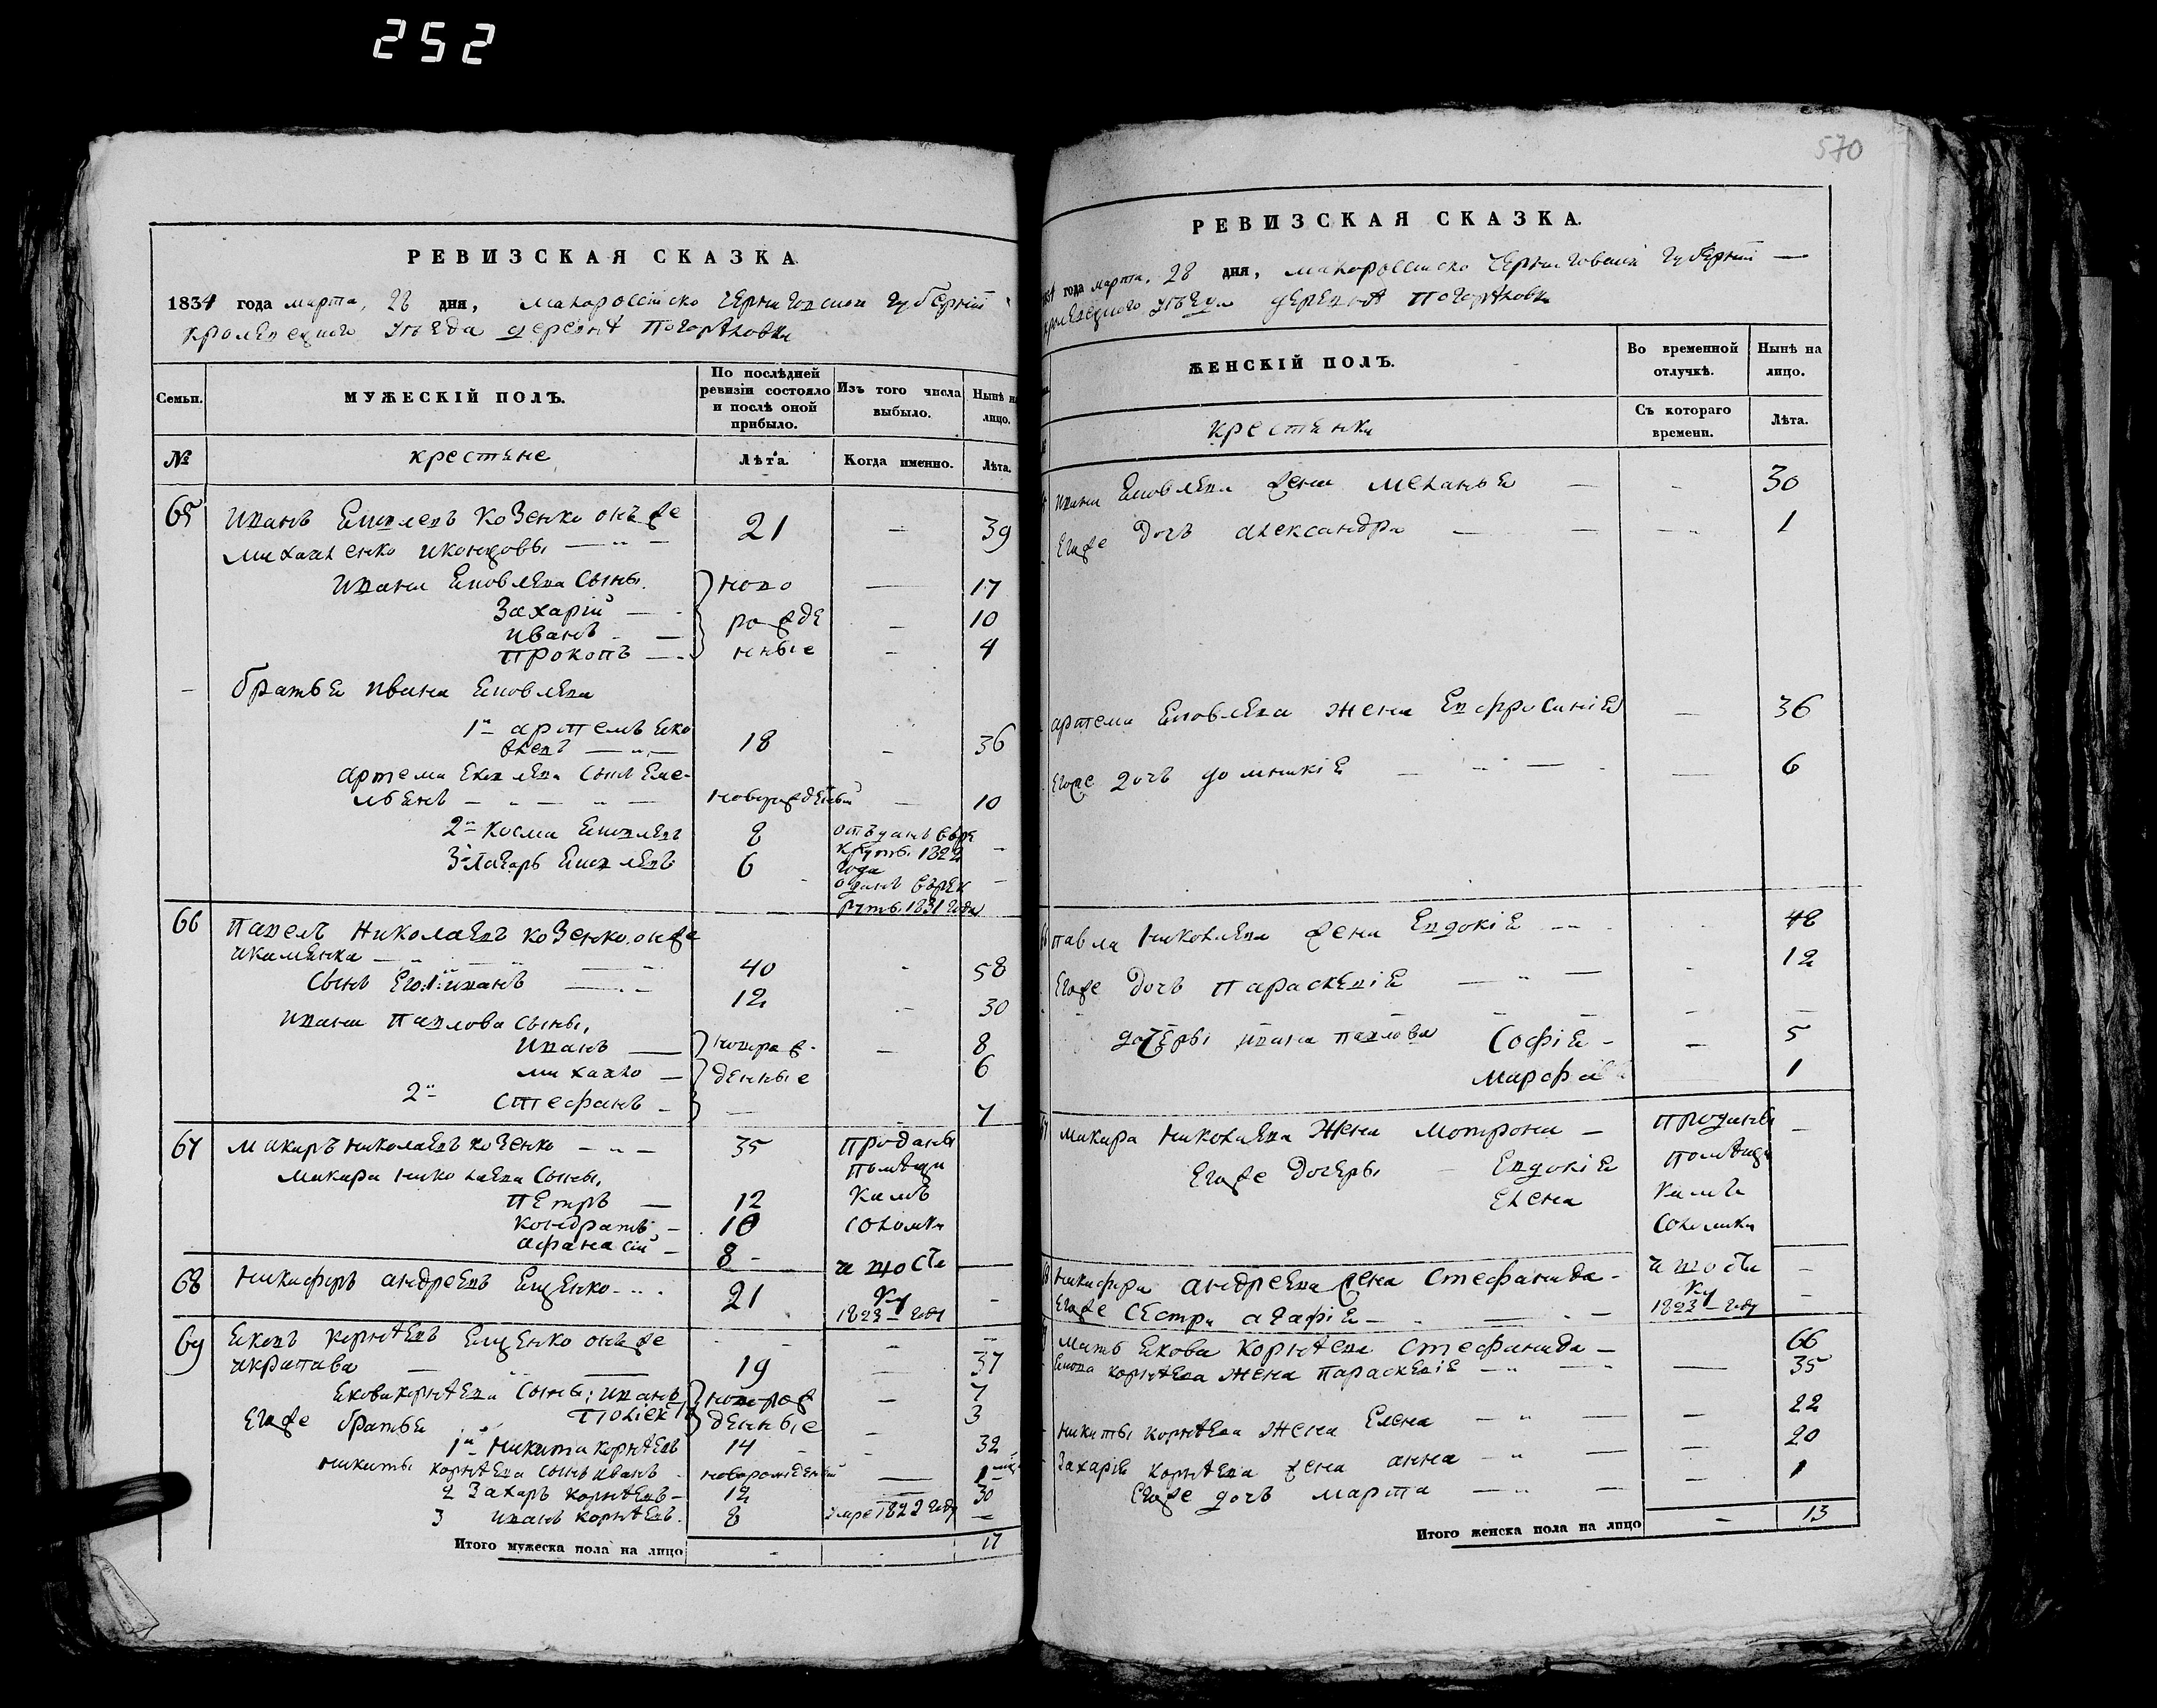 252
570
РЕВИЗСКАЯ СКАЗКА
1834 года марта, 28 дня, малороссійско черниговской губерніи
кролевецкого уѣзда деревнѣ Погорѣловки
Семьи.
МУЖЕСКІЙ ПОЛЪ.
По послѣдней ревизіи состояло и послѣ оной прибыло.
Изъ того числа выбыло.
Нынѣ на лицо.
№
крестяне
Лѣта.
Когда именно.
Лѣта.
65 Иванъ Яковлевъ Козенко онъже 21 — 39
Михайленко
Ивана Яковлева сыны. ново — 17
Захарій — рожде 10
Иванъ — — 10
Прокопъ — нные — 4
братья Ивана Яковлева
1й артемъ Яко
влевъ — 18 — 36
Артема Яковлева сынъ Еме-
льянъ — новорожденный — 10
2й Косма Яковлевъ 8 отъданъ въре
круты 1822 —
года
3й Лазарь Яковлевъ 6 отданъ върек —
руты 1831 года
66 Павелъ Николаевъ Козенко онже
— 40 — 58
сынъ его: 1й Иванъ — 12 — 30
Ивана Павлова сыны,
Иванъ — новорож- — 8
михайло — денные 6
2й Стефанъ — — 7
67 Макаръ Николаевъ Козенко — 35 проданы
Макара Николаева сыны, помѣщи
Петръ — 12 камъ
Кондратъ — 10 соломки
афанасій — 8 —
68 Никифоръ андреевъ Ященко 21 —
1823 году
69 Яковъ Корнѣевъ Ященко онъже
19 — 37
Якова Корнѣева сыны: Иванъ новорож — 7
денные 3
Егоже братья
1й Никита Корнѣевъ 14 — 32
Никиты Корнѣева сынъ Иванъ новорожденный — 1
2 Захаръ Корнѣевъ — 12 — 30
3 Иванъ Корнѣевъ. 8 умре 1822 году —
Итого мужеска пола на лицо — — 17
РЕВИЗСКАЯ СКАЗКА.
года марта, 28 дня, малороссійско черниговской губерніи —
кролевецкого уѣзда деревнѣ Погорѣловки
ЖЕНСКІЙ ПОЛЪ.
Во временной отлучкѣ.
Нынѣ на лицо.
Съ котораго времени.
Лѣта.
крестянки
Ивана Яковлева жена Меланья — — 30
Егоже дочь александра — — 1
артема Яковлева жена Евфросинія — 36
Егоже дочъ Домникія — — 6
Павла Николаева жена Евдокія — 48
Егоже дочъ Параскевія — 12
дочеры Ивана Павлова Софія — — 5
Марфа 1
Макара Николаева жена Мотрона — проданы —
Егоже дочеры Евдокія помѣщи
Елена камъ
соломки
Никифора андреева жена Стефанида — —
Егоже сестра агафія — 1823 — году —
Мать Якова Корнѣева Стефанида — 66
Якова Корнѣева жена Параскевія — — 35
Никиты Корнѣева жена Елена — — 22
Захарія Корнѣева жена анна — — 20
Егоже дочъ Марта — — 1
Итого женска пола на лицо — 13